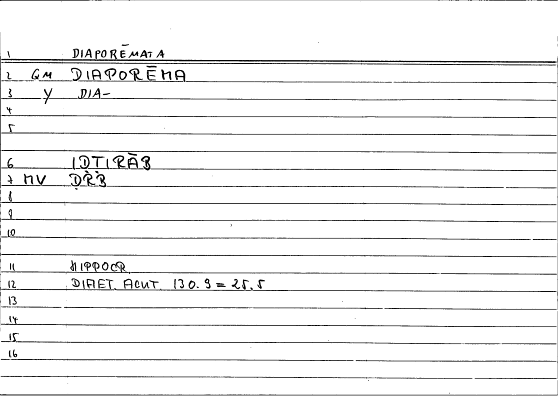 1 DIAPORĒMATA
2 GM DIAPORĒMA
3 Y DIA-
4
5
6 IḌTIRĀB
7 MV ḌRB
8
9
10
11 HIPPOCR
12 DIAET. ACUT 130.9 = 25.5
13
14
15
16